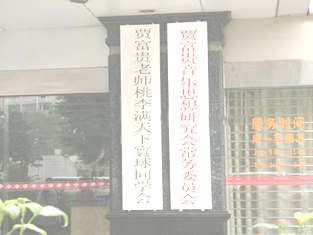 贾富贵老师桃李满天下寰球同学会
贾富贵音乐思想研究会常务委员会
服务时间